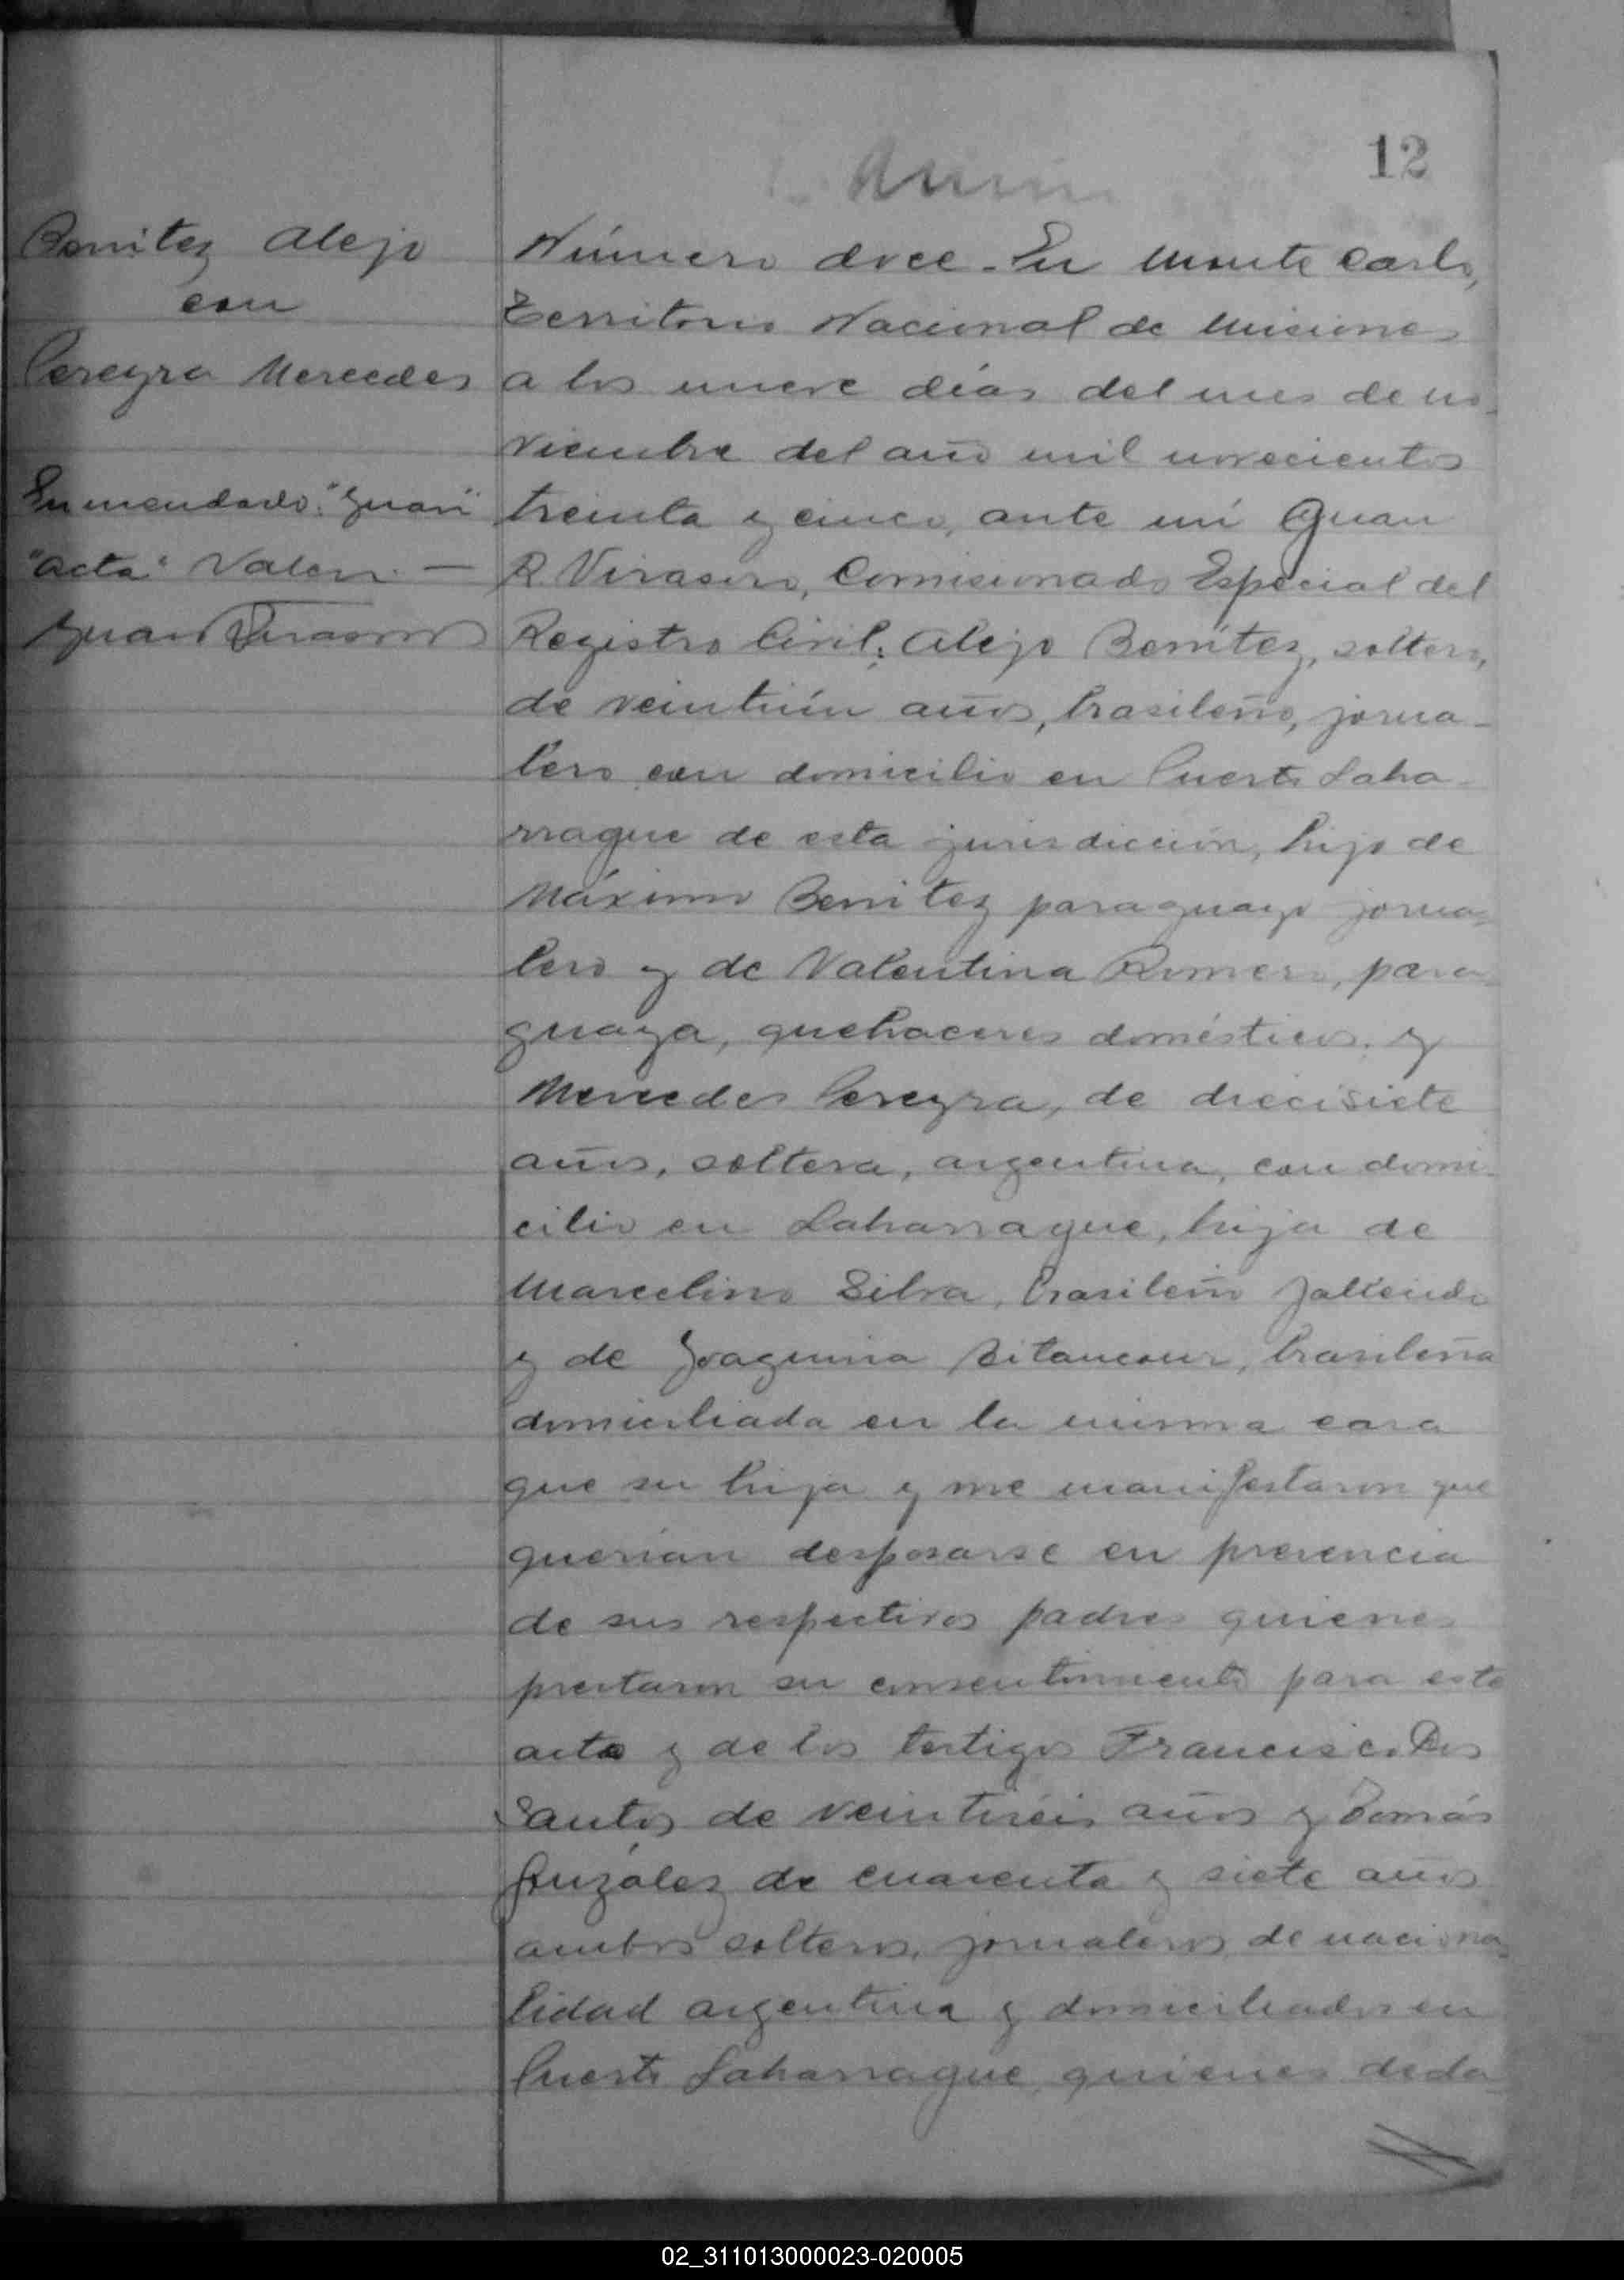 12
Benitez Alejo
con
Pereyra Mercedes
Enmendado: "Juan"
"acta" Valen. —
Juan Virasoro
Número doce. En Monte Carlo,
Territorio Nacional de Misiones
a los nueve días del mes de no-
viembre del año mil novecientos
treinta y cinco, ante mí Juan
R. Virasoro, Comisionado Especial del
Registro Civil; Alejo Benítez, soltero,
de veintiún años, brasileño, jorna-
lero con domicilio en Puerto Laha-
rrague de esta jurisdicción, hijo de
Máximo Benitez paraguayo jorna-
lero y de Valentina Romero, para-
guaya, quehaceres domésticos; y
Mercedes Pereyra, de diecisiete
años, soltera, argentina, con domi-
cilio en Laharrague, hija de
Marcelino Silva, brasileño fallecido
y de Joaquina Bitancour, brasileña
domiciliada en la misma casa
que su hija y me manifestaron que
querían desposarse en presencia
de sus respectivos padres quienes
prestaron su consentimiento para este
acta y de los testigos Francisco Dos
Santos de veintiséis años y Tomás
González de cuarenta y siete años
ambos solteros, jornaleros, de naciona-
lidad argentina y domiciliados en
Puerto Laharrague, quienes decla-
02_311013000023-020005